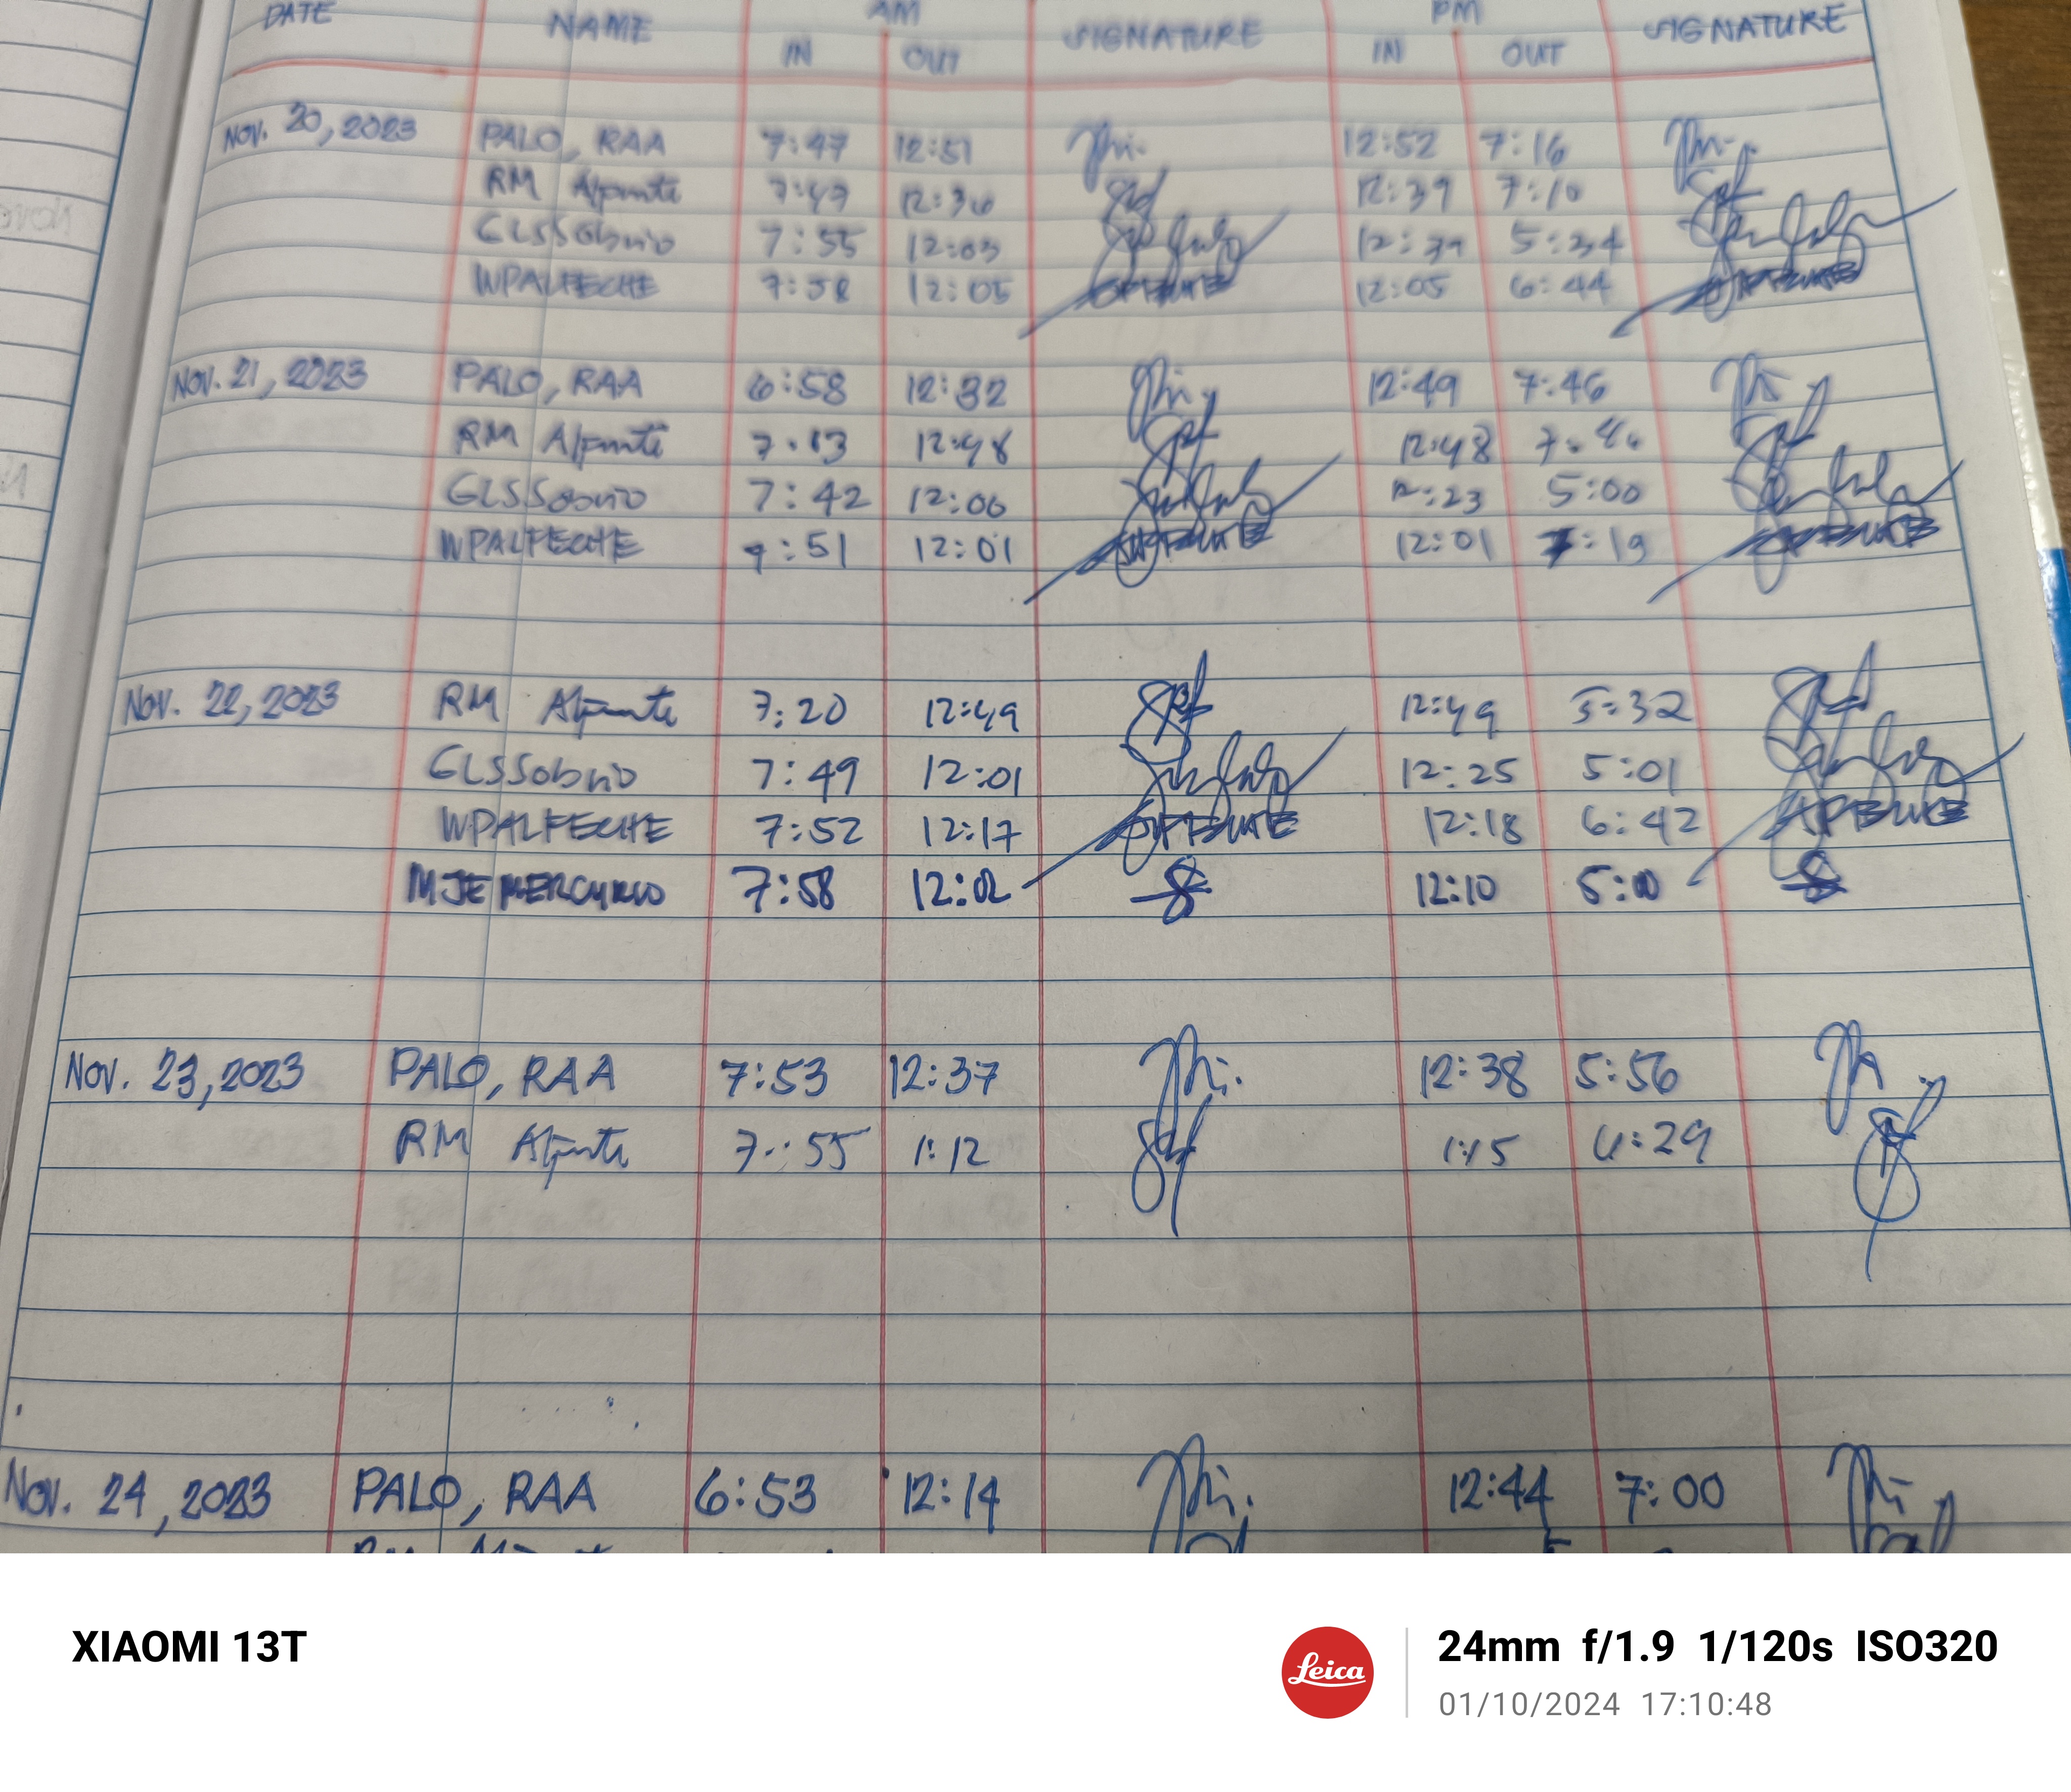 DATE NAME AM SIGNATURE PM SIGNATURE
IN OUT IN OUT
NOV. 20, 2023 PALO, RAA 7:47 12:51 12:52 7:16
RM Alpante 7:47 12:36 12:39 7:10
GLSSobrio 7:55 12:03 12:39 5:34
WPALFECHE 7:58 12:05 12:05 6:44
NOV. 21, 2023 PALO, RAA 6:58 12:32 12:49 7:46
RM Alpante 7:13 12:48 12:48
GLSSobrio 7:42 12:06 12:23 5:00
WPALFECHE 7:51 12:01 12:01 7:19
NOV. 22, 2023 RM Alpante 7:20 12:49 12:49 5:32
GLSSobrio 7:49 12:01 12:25 5:01
WPALFECHE 7:52 12:17 12:18 6:42
MJEMERCURIO 7:58 12:02 12:10 5:00
NOV. 23, 2023 PALO, RAA 7:53 12:37 12:38 5:56
RM Alpante 7:55 1:12 1:15 6:29
NOV. 24, 2023 PALO, RAA 6:53 12:14 12:44 7:00
XIAOMI 13T
Leica
24mm f/1.9 1/120s ISO320
01/10/2024 17:10:48